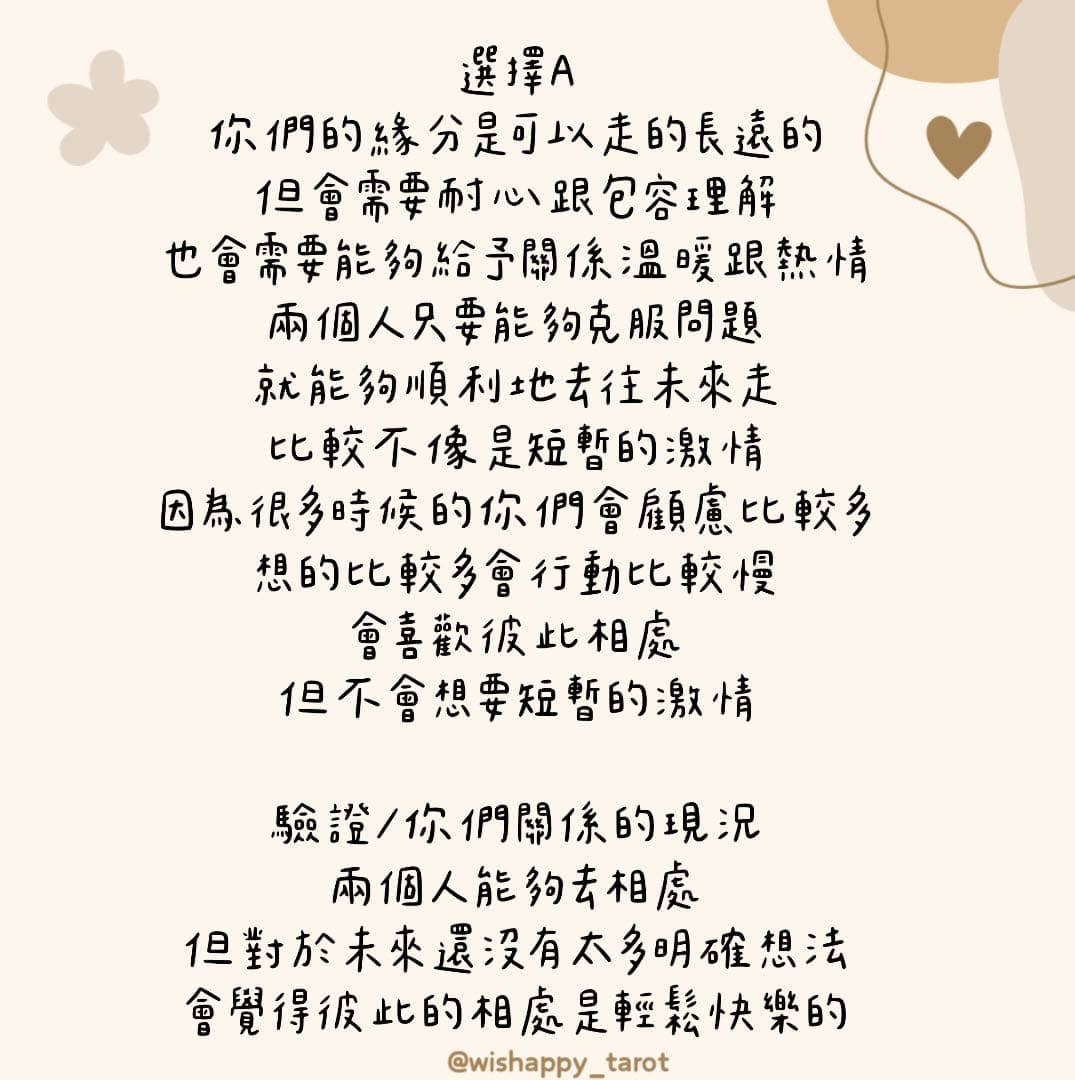 選擇A
你們的緣分是可以走的長遠的
但會需要耐心跟包容理解
也會需要能夠給予關係溫暖跟熱情
兩個人只要能夠克服問題
就能夠順利地去往未來走
比較不像是短暫的激情
因為很多時候的你們會顧慮比較多
想的比較多會行動比較慢
會喜歡彼此相處
但不會想要短暫的激情
驗證/你們關係的現況
兩個人能夠去相處
但對於未來還沒有太多明確想法
會覺得彼此的相處是輕鬆快樂的
@wishappy_tarot